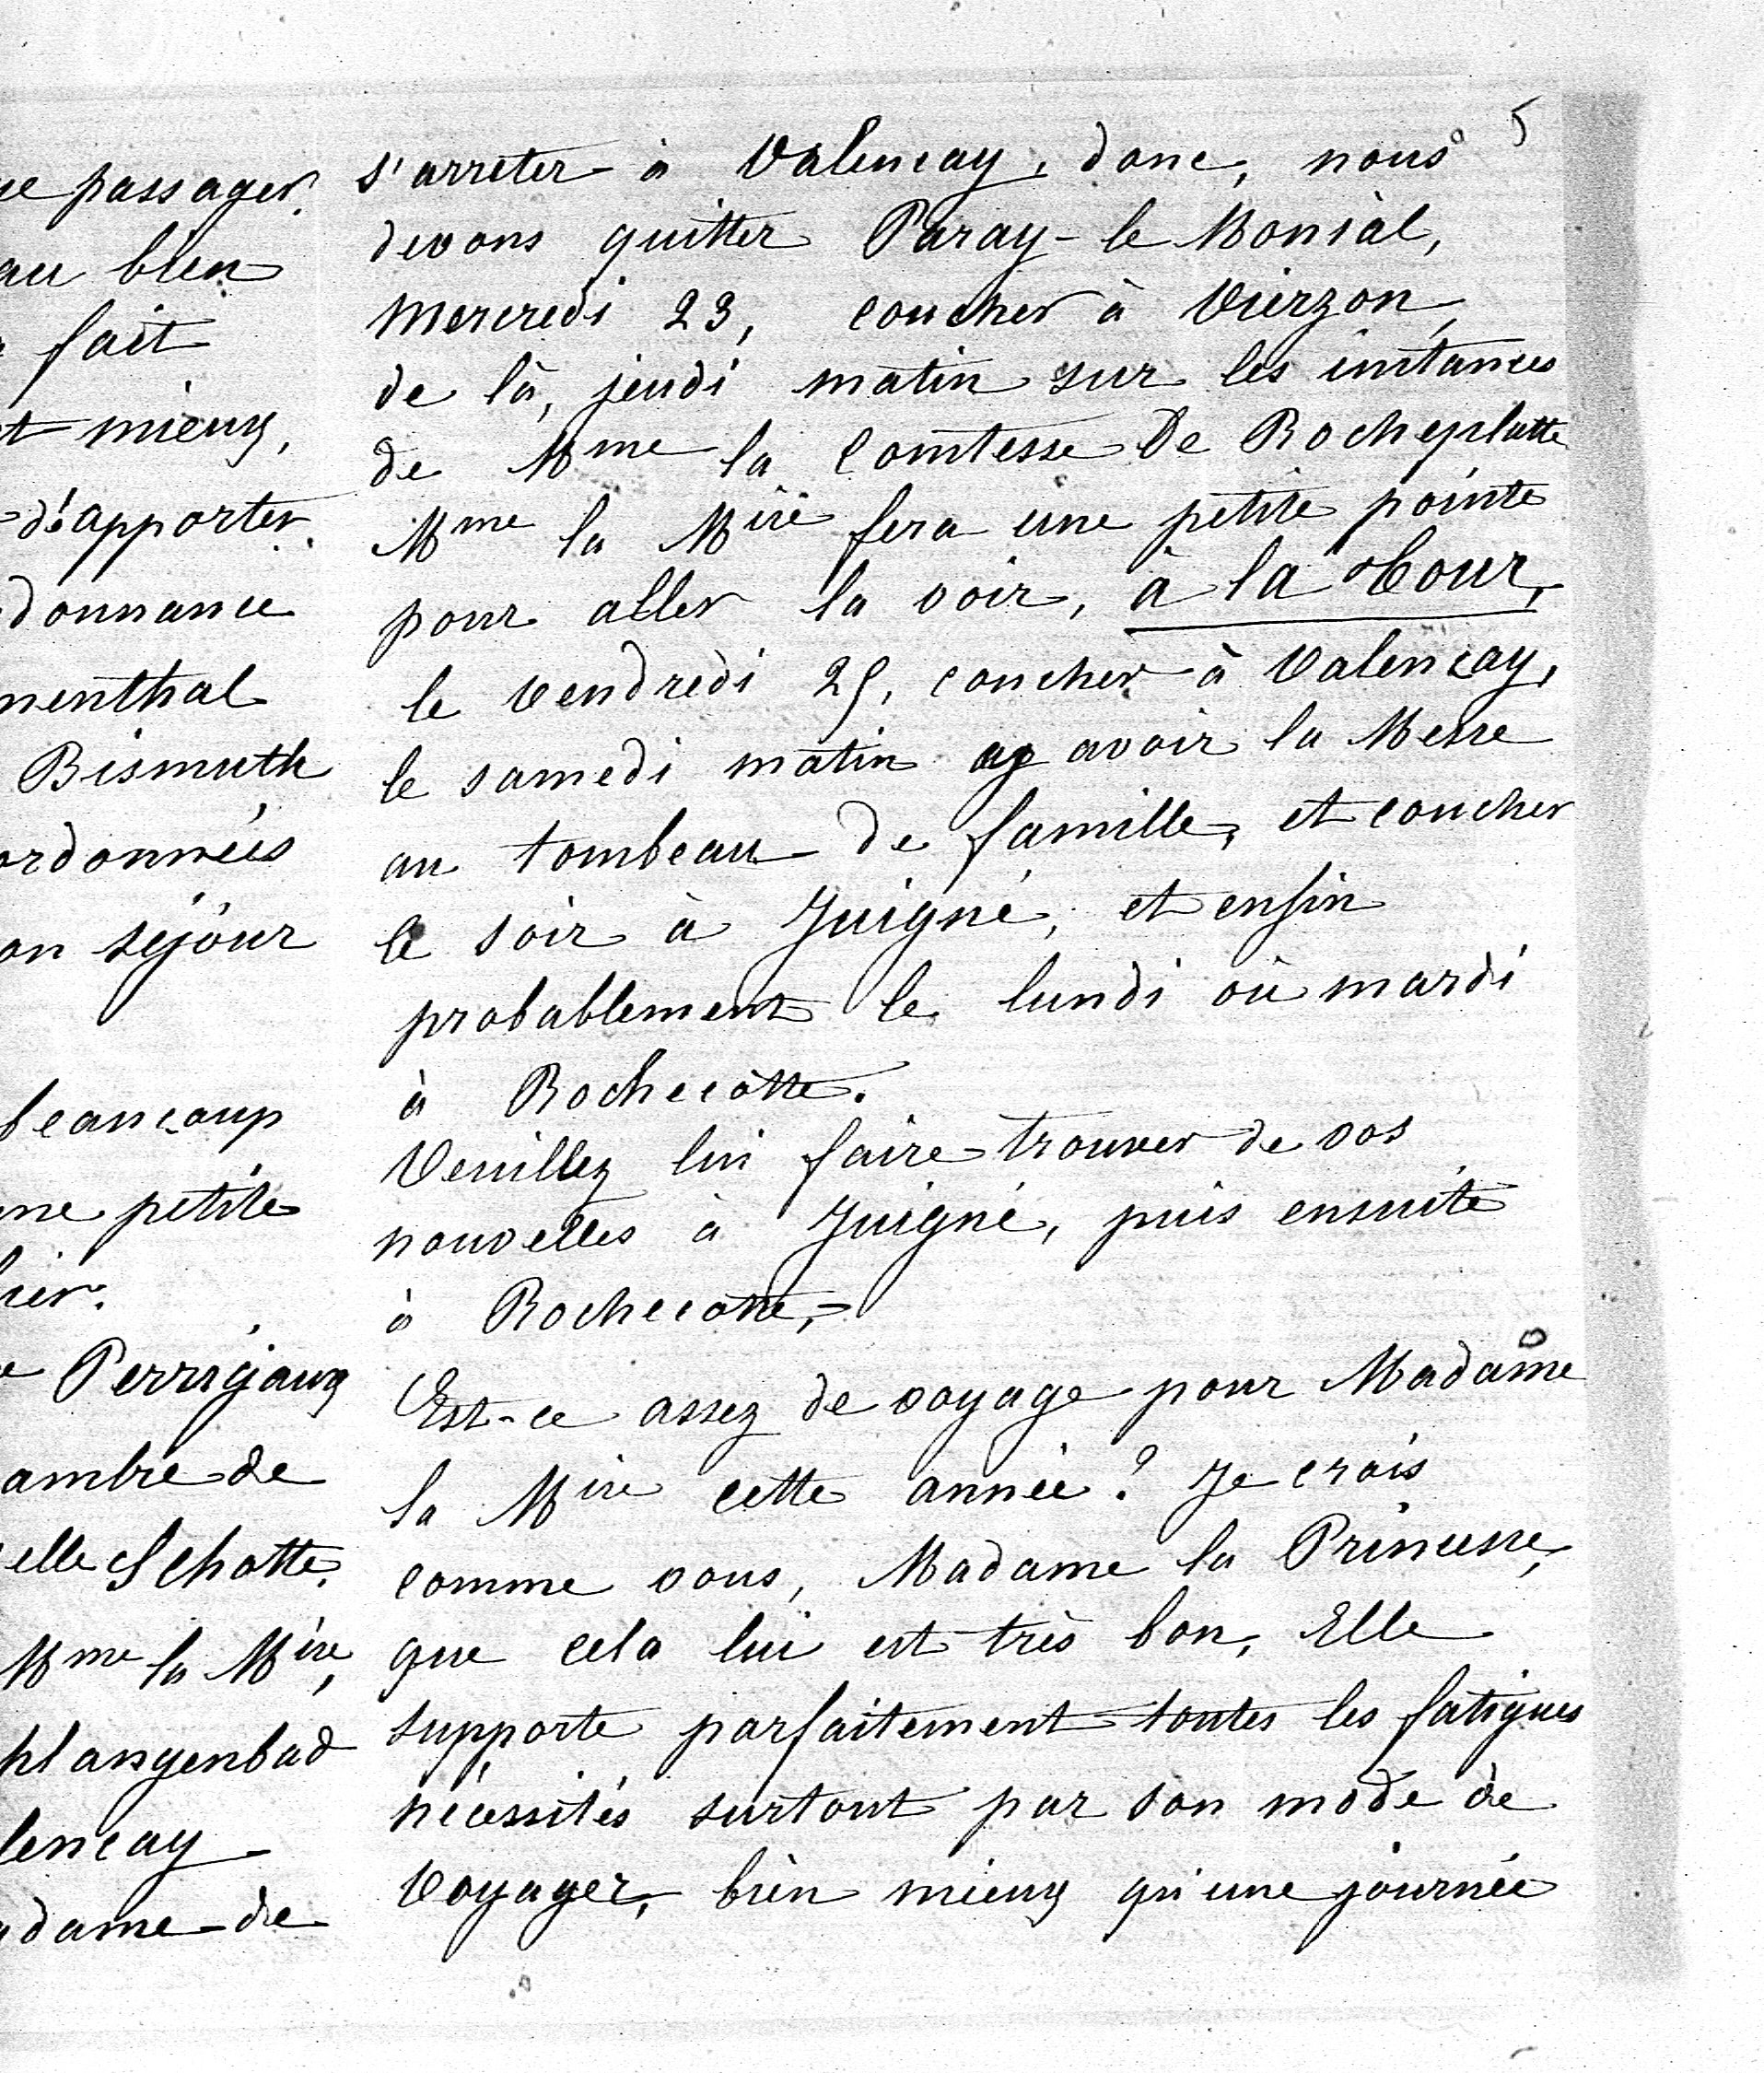 ue passager.
au bien
fait
et mieux,
d'apporter.
donnance
menthal
Bismuth
ordonnées
on séjour
beaucoup
ne petite
Perrigaux
ambre de
elle Schotte.
Mme la Mise,
hlangenbad
lencay
adame de
5
s'arreter à Valencay, donc, nous
devons quitter Paray-le Monial,
Mercredi 23, coucher à Vierzon,
de là, jeudi matin sur les instances
de Mme la Comtesse De Rocheplatte
Mme la Mise fera une petite pointe
pour aller la voir, à la Cour,
le Vendredi 25, coucher à Valencay,
le samedi matin avoir la Messe
au tombeau de famille, et coucher
le soir à Juigné, et enfin
probablement le lundi où mardi
à Rochecotte.
Veuillez lui faire trouver de vos
nouvelles à Juigné, puis ensuite
à Rochecotte,-
Est-ce assez de voyage pour Madame
la Mise cette année? Je crois
comme vous, Madame la Princesse,
que cela lui est très bon, Elle
supporte parfaitement toutes les fatigues
nécessités surtout par son mode de
Voyager, bien mieux qu'une journée